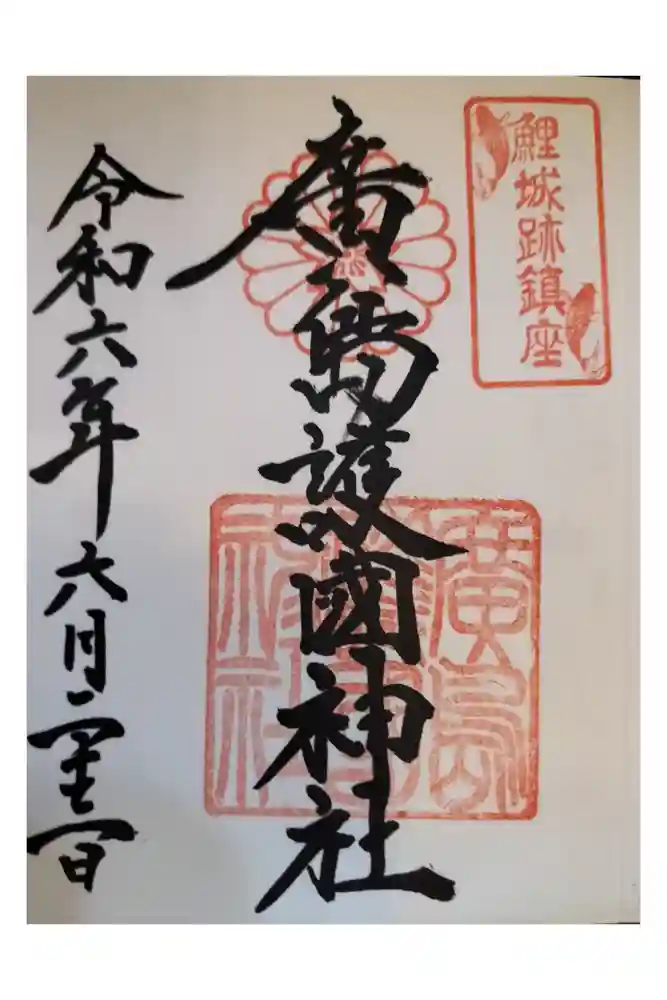 鯉城跡鎮座
廣島護國神社
廣島
護國
神社
令和六年六月日